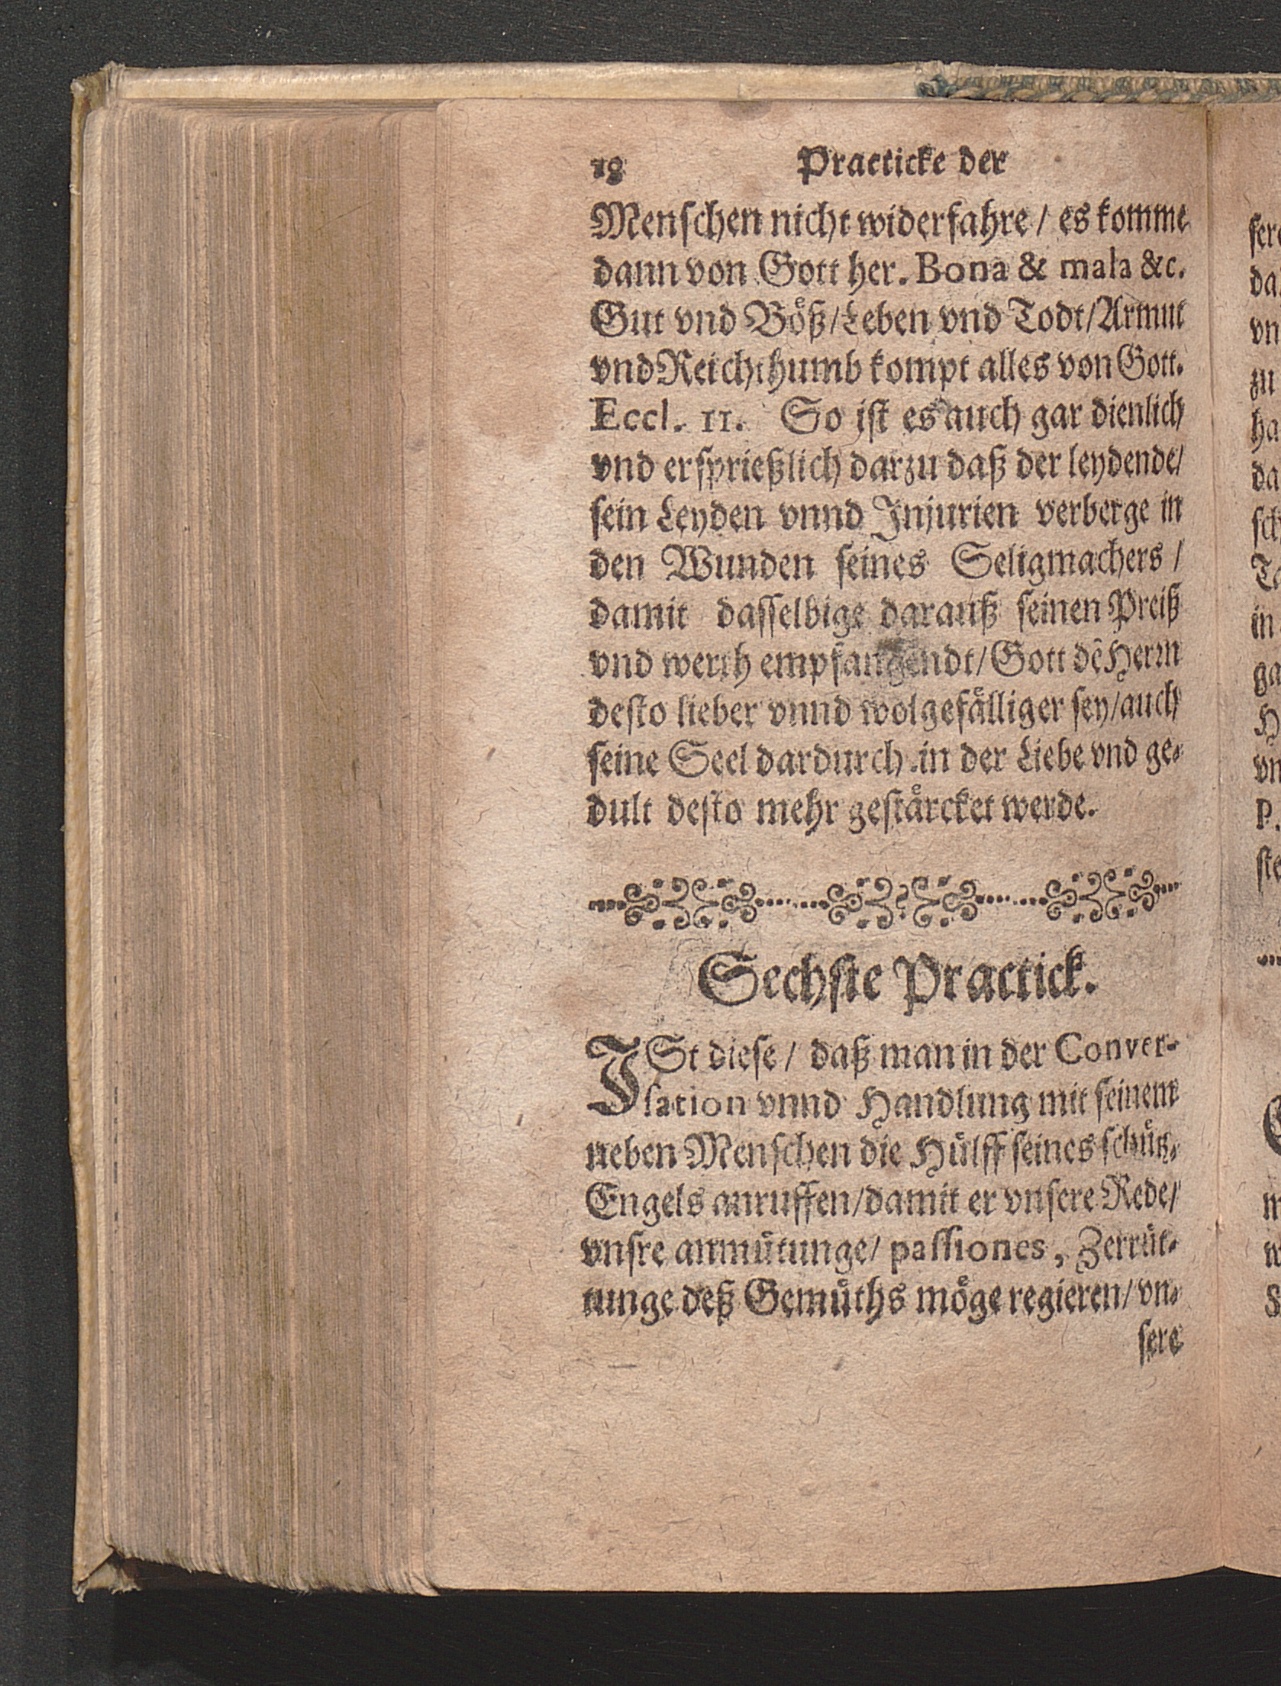 18 Practicke der
Menschen nicht widerfahre / es komme
dann von Gott her. Bona & mala &c.
Gut vnd Böß/Leben vnd Todt/Armut
vnd Reichthumb kompt alles von Gott.
Eccl. 11. So ist es auch gar dienlich
vnd ersprießlich darzu daß der leydende/
sein Leyden vnnd Injurien verberge in
den Wunden seines Seligmachers /
damit dasselbige darauß seinen Preiß
vnd werth empfangendt/Gott dẽ Herrn
desto lieber vnnd wolgefälliger sey/auch
seine Seel dardurch in der Liebe vnd ge-
dult desto mehr gestärcket werde.
Sechste Practick.
ISt diese / daß man in der Conver-
sation vnnd Handlung mit seinem
neben Menschen die Hülff seines schütz-
Engels anruffen/damit er vnsere Rede/
vnsre anmütunge/ passiones, Zerrüt-
tunge deß Gemüths möge regieren/vn-
sere
sere
da
vn
zu
ha
da
sch
in
ga
H
vn
P.
ste